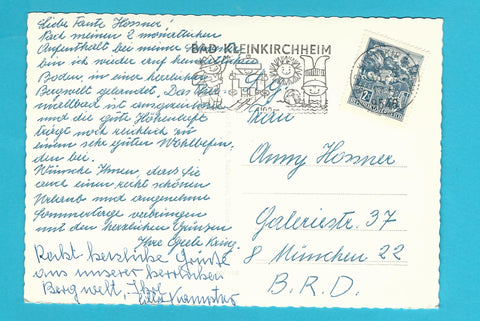 Liebe Tante Hosner!
Nach meinen 2 monatlichen
Aufenthalt bei meine
bin ich wieder auf
Boden, in einer herrlichen
Bergwelt gelandet. Das
und die gute Höhenluft
trägt noch reichlich zu
einem sehr guten Wohlbefin,
den bei.
Wünsche Ihnen, dass sie
auch einen recht schönen
Urlaub und angenehme
Sommertage verbringen
mit den herzlichen Grüssen
Ihre
Recht herzliche Grüsse
aus unserer herrlichen
Bergwelt,
BAD KLEINKIRCHHEIM
Frau
Anny Hosner
Galeriestr. 37
8 München 22
B.R.D.